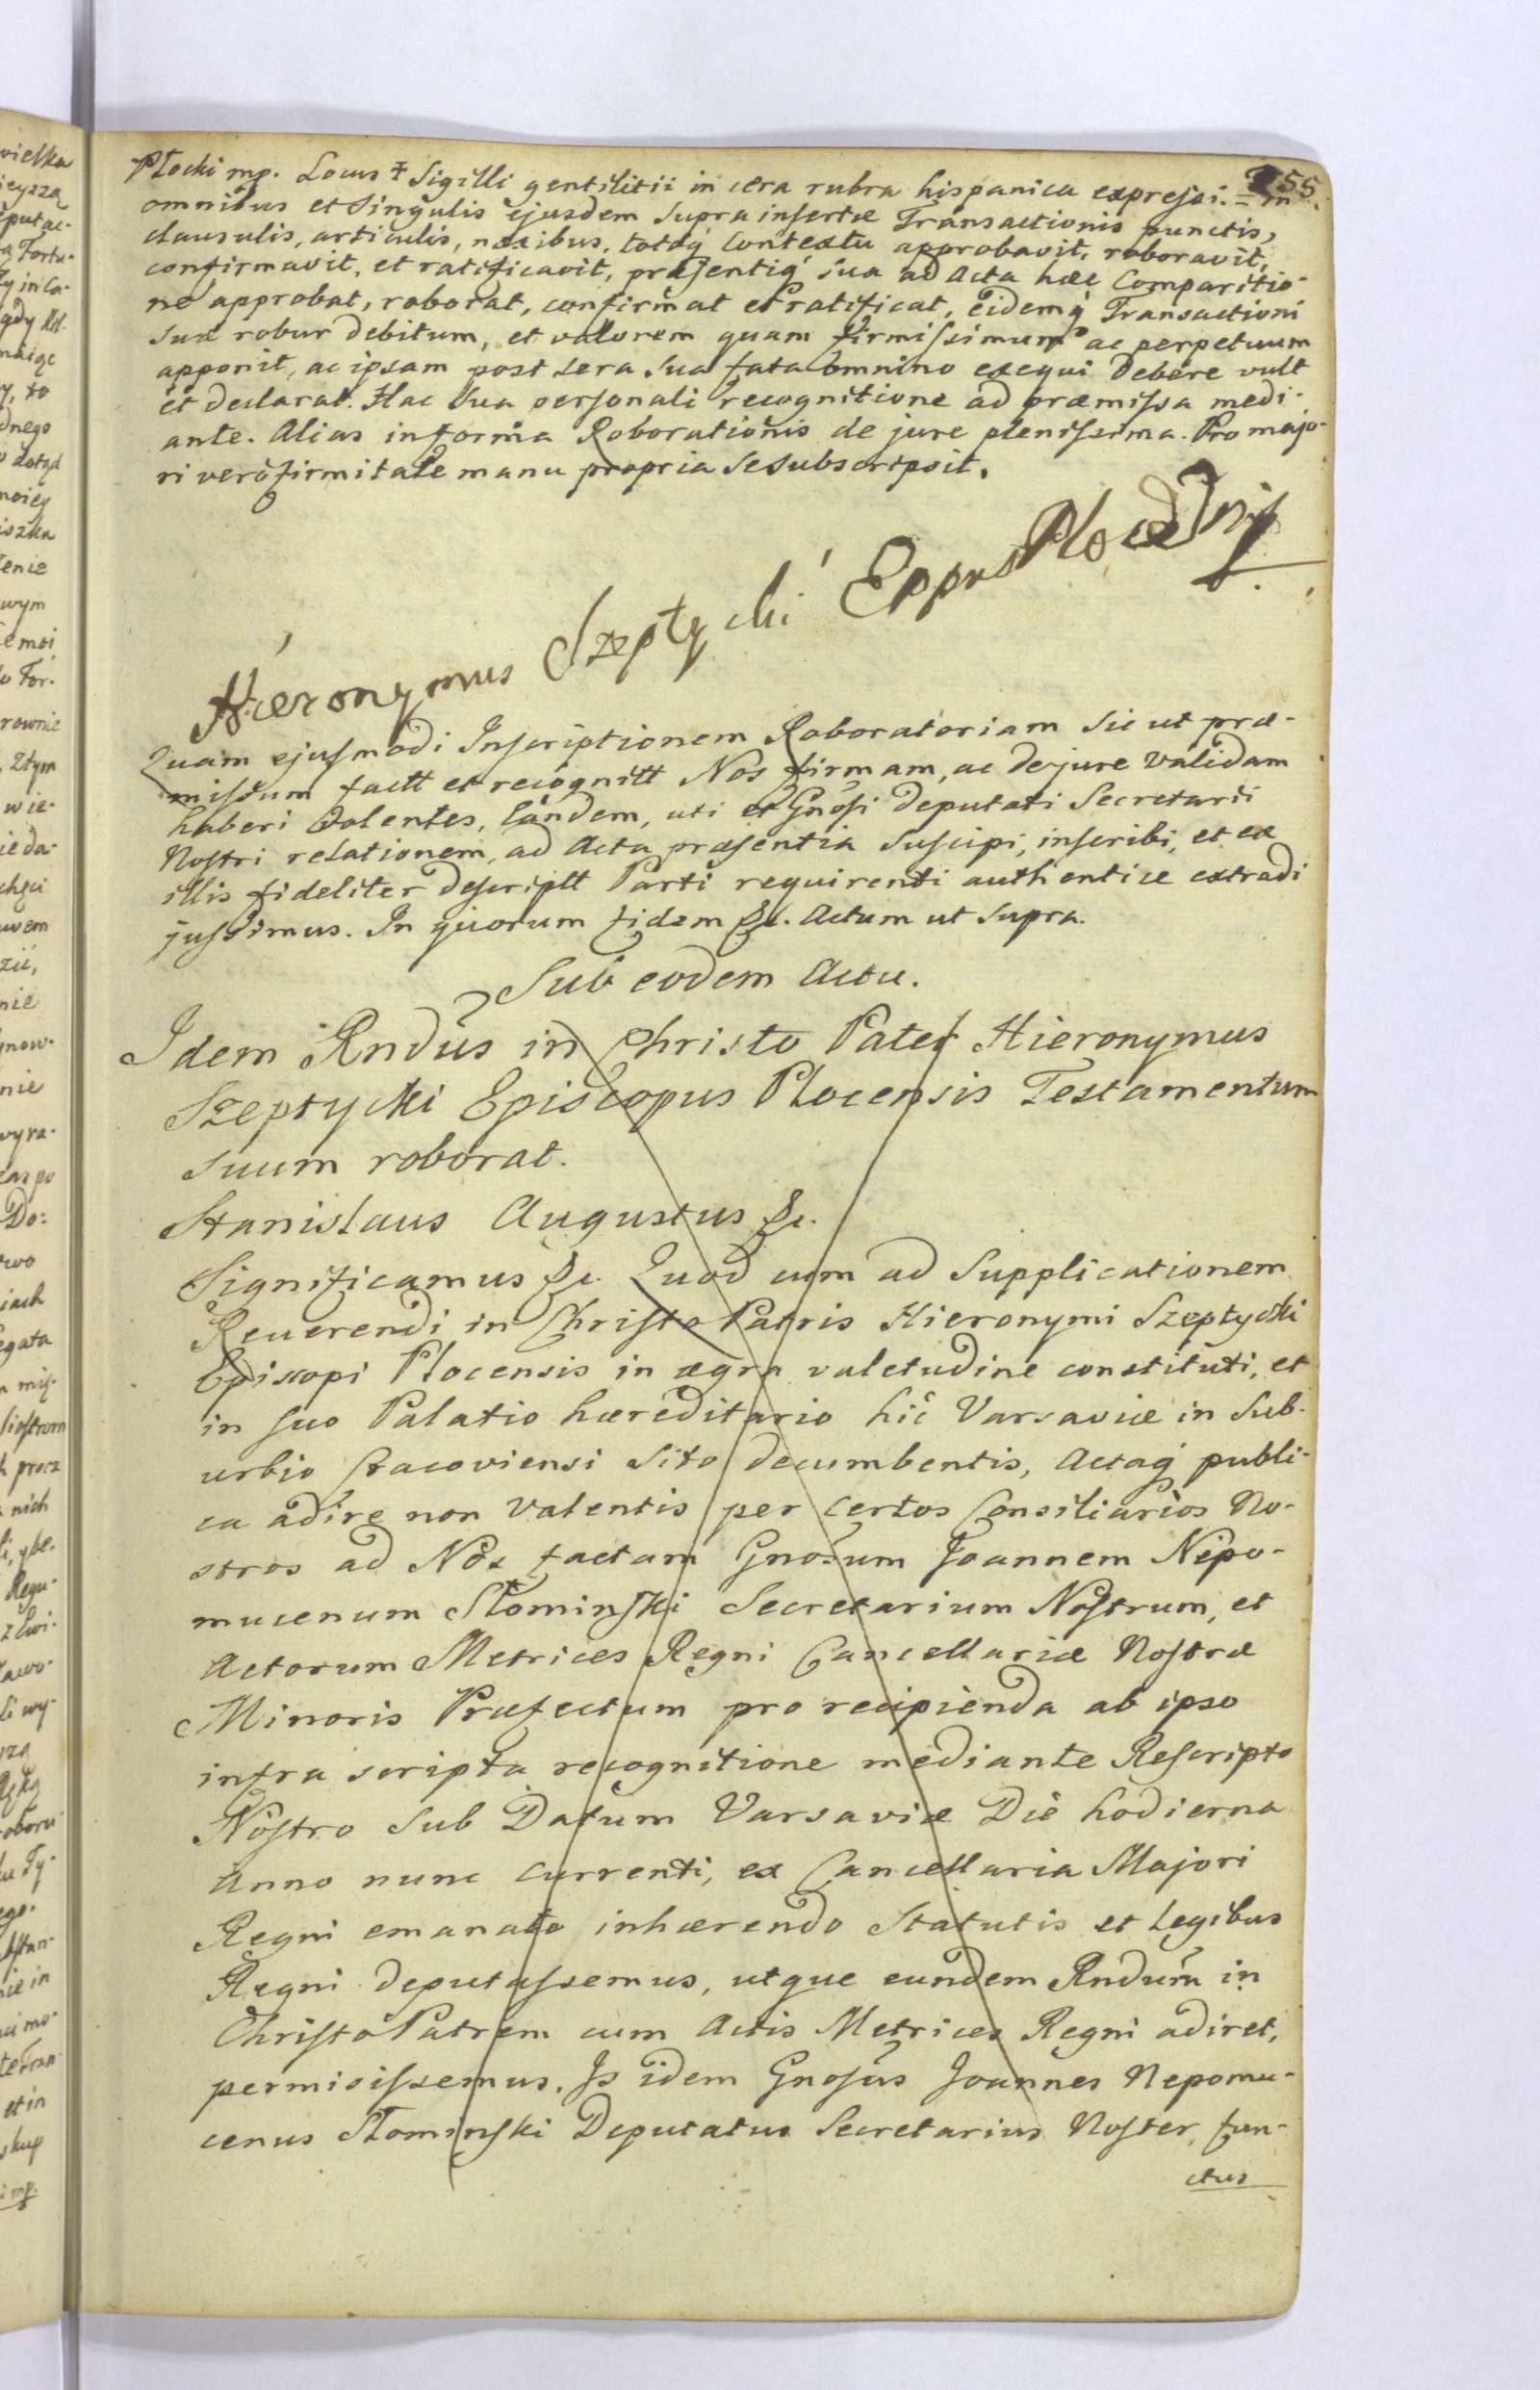 255.
Płocki mp. Locus ‡ Sigilli gentilitii in cera rubra hispanica expressi. = in
omnibus et Singulis ejusdem Supra insertæ Transactionis punctis,
clausulis, articulis, nexibus, totoq́ Contextu approbavit, roboravit,
confirmavit, et ratificavit, præsentiq́ sua ad Acta hæc Comparitio-
ne approbat, roborat, confirmat et ratificat, Eidemq́ Transactioni
suæ robur debitum, et valorem quam firmissimum ac perpetuum
apponit, ac ipsam post sera sua fata omnino exequi debere vult
et declarat. Hac Sua personali recognitione ad præmissa medi-
ante. Alias in forma Roborationis de jure plenissima. Pro majo-
ri verò firmitate manu propria se subscripsit.
Hieronymus Szeptycki Eppus Płoc
Quam ejusmodi Inscriptionem Roboratoriam Sic ut præ-
missum factt et recognitt Nos firmam, ac de jure validam
haberi volentes, Eandem, uti et Gnosi deputati Secretarii
Nostri relationem, ad Acta præsentia Suscipi, inscribi, et ex
illis fideliter descriptt Parti requirenti authentice extradi
jussimus. In quorum fidem &c. Actum ut Supra.
Sub eodem Actu.
Idem Rndus in Christo Pater Hieronymus
Szeptycki Episcopus Plocensis Testamentum
suum roborat.
Stanislaus Augustus &c.
Significamus &c. Quod cum ad Supplicationem
Reverendi in Christo Patris Hieronymi Szeptycki
Episcopi Plocensis in ægra valetudine constituti, et
in suo Palatio hæreditario hic Varsaviæ in Sub-
urbio Cracoviensi Sito decumbentis, Actaq́ publi-
ca adire non valentis per certos Consiliarios No-
stros ad Nos factam Gnosum Joannem Nepo-
mucenum Słominski Secretarium Nostrum, et
Actorum Metrices Regni Cancellariæ Nostræ
Minoris Præfectum pro recipienda ab ipso
infra scripta recognitione mediante Rescripto
Nostro Sub Datum Varsaviæ Die hodierna
Anno nunc currenti, ex Cancellaria Majori
Regni emanato inhærendo Statutis et Legibus
Regni deputassemus, utque eundem Rndum in
Christo Patrem cum Actis Metrices Regni adiret,
permisissemus. Is idem Gnosus Joannes Nepomu-
cenus Słominski Deputatus Secretarius Noster, fun-
ctus